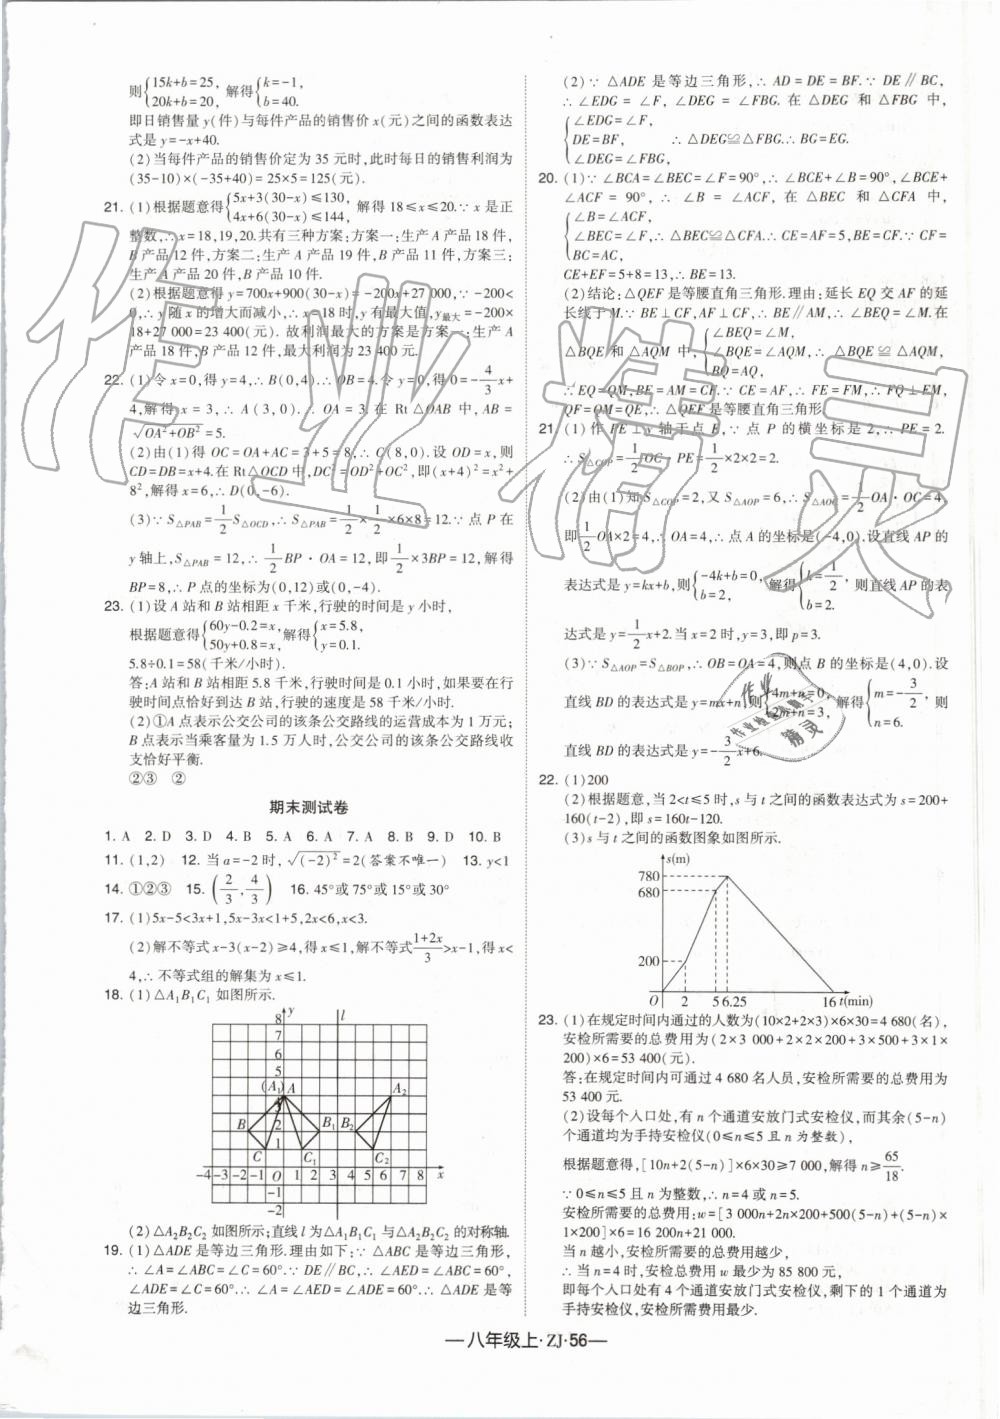 则{15k+b=25, 20k+b=20, 解得{k=-1, b=40.
即日销售量 y(件)与每件产品的销售价 x(元)之间的函数表达
式是 y=-x+40.
(2)当每件产品的销售价定为 35 元时,此时每日的销售利润为
(35-10)×(-35+40)=25×5=125(元).
21. (1)根据题意得{5x+3(30-x)≤130, 4x+6(30-x)≤144, 解得 18≤x≤20.∵x 是正
整数,∴x=18,19,20.共有三种方案:方案一:生产 A 产品 18 件,
B 产品 12 件,方案二:生产 A 产品 19 件,B 产品 11 件,方案三:
生产 A 产品 20 件,B 产品 10 件.
(2)根据题意得 y=700x+900(30-x)=-200x+27 000,∵-200<
0,∴y 随 x 的增大而减小,∴x=18 时,y 有最大值,y最大=-200×
18+27 000=23 400(元). 故利润最大的方案是方案一:生产 A
产品 18 件,B 产品 12 件,最大利润为 23 400 元.
22. (1)令 x=0,得 y=4,∴B(0,4).∴OB=4.令 y=0,得 0=-4/3x+
4,解得 x=3,∴A(3,0).∴OA=3.在 Rt△OAB 中,AB=
√(OA²+OB²)=5.
(2)由(1)得 OC=OA+AC=3+5=8,∴C(8,0).设 OD=x,则
CD=DB=x+4.在 Rt△OCD 中,DC²=OD²+OC²,即(x+4)²=x²+
8²,解得 x=6,∴D(0,-6).
(3)∵S△PAB=1/2S△OCD,∴S△PAB=1/2×1/2×6×8=12.∵点 P 在
y 轴上,S△PAB=12,∴1/2BP·OA=12,即1/2×3BP=12,解得
BP=8,∴P 点的坐标为(0,12)或(0,-4).
23. (1)设 A 站和 B 站相距 x 千米,行驶的时间是 y 小时,
根据题意得{60y-0.2=x, 50y+0.8=x, 解得{x=5.8, y=0.1.
5.8÷0.1=58(千米/小时).
答:A 站和 B 站相距 5.8 千米,行驶时间是 0.1 小时,如果要在行
驶时间点恰好到达 B 站,行驶的速度是 58 千米/小时.
(2)①A 点表示公交公司的该条公交路线的运营成本为 1 万元;
B 点表示当乘客量为 1.5 万人时,公交公司的该条公交路线收
支恰好平衡.
②③ ②
期末测试卷
1. A 2. D 3. D 4. B 5. A 6. A 7. A 8. B 9. D 10. B
11. (1,2) 12. 当 a=-2 时,√(-2)²=2(答案不唯一) 13. y<1
14. ①②③ 15. (2/3,4/3) 16. 45°或 75°或 15°或 30°
17. (1)5x-5<3x+1,5x-3x<1+5,2x<6,x<3.
(2)解不等式 x-3(x-2)≥4,得 x≤1,解不等式(1+2x)/3>x-1,得 x<
4,∴不等式组的解集为 x≤1.
18. (1)△A₁B₁C₁ 如图所示.
8 y l
7
6
5
(A₁) A A₂
3
B 2 B₁ B₂
C 1 C₁ C₂
-4 -3 -2 -1 O 1 2 3 4 5 6 7 8 x
-1
-2
(2)△A₂B₂C₂ 如图所示;直线 l 为△A₁B₁C₁ 与△A₂B₂C₂ 的对称轴.
19. (1)△ADE 是等边三角形.理由如下:∵△ABC 是等边三角形,
∴∠A=∠ABC=∠C=60°.∵DE∥BC,∴∠AED=∠ABC=60°,
∠ADE=∠C=60°.∴∠A=∠AED=∠ADE=60°.∴△ADE 是等
边三角形.
(2)∵△ADE 是等边三角形,∴AD=DE=BF.∵DE∥BC,
∴∠EDG=∠F,∠DEG=∠FBG.在△DEG 和△FBG 中,
{∠EDG=∠F,
DE=BF, ∴△DEG≌△FBG.∴BG=EG.
∠DEG=∠FBG,
20. (1)∵∠BCA=∠BEC=∠F=90°,∴∠BCE+∠B=90°,∠BCE+
∠ACF=90°,∴∠B=∠ACF,在△BEC 和△CFA 中,
{∠B=∠ACF,
∠BEC=∠F, ∴△BEC≌△CFA.∴CE=AF=5,BE=CF.∵CF=
BC=AC,
CE+EF=5+8=13,∴BE=13.
(2)结论:△QEF 是等腰直角三角形.理由:延长 EQ 交 AF 的延
长线于 M.∵BE⊥CF,AF⊥CF,∴BE∥AM,∴∠BEQ=∠M.在
△BQE 和△AQM 中,{∠BEQ=∠M, ∠BQE=∠AQM, BQ=AQ, ∴△BQE≌△AQM.
∴EQ=QM,BE=AM=CF.∵CE=AF,∴FE=FM,∴FQ⊥EM,
QF=QM=QE,∴△QEF 是等腰直角三角形.
21. (1)作 PE⊥y 轴于点 E,∵点 P 的横坐标是 2,∴PE=2.
∴S△COP=1/2OC·PE=1/2×2×2=2.
(2)由(1)知 S△COP=2,又 S△AOP=6,∴S△AOC=1/2OA·OC=4,
即1/2OA×2=4,∴OA=4,∴点 A 的坐标是(-4,0).设直线 AP 的
表达式是 y=kx+b,则{-4k+b=0, b=2, 解得{k=1/2, b=2. 则直线 AP 的表
达式是 y=1/2x+2.当 x=2 时,y=3,即 p=3.
(3)∵S△AOP=S△BOP,∴OB=OA=4,则点 B 的坐标是(4,0).设
直线 BD 的表达式是 y=mx+n,则{4m+n=0, 2m+n=3, 解得{m=-3/2, n=6. 则
直线 BD 的表达式是 y=-3/2x+6.
22. (1)200
(2)根据题意,当 2<t≤5 时,s 与 t 之间的函数表达式为 s=200+
160(t-2),即 s=160t-120.
(3)s 与 t 之间的函数图象如图所示.
s(m)
780
680
200
O 2 5 6.25 16 t(min)
23. (1)在规定时间内通过的人数为(10×2+2×3)×6×30=4 680(名),
安检所需要的总费用为(2×3 000+2×2×200+3×500+3×1×
200)×6=53 400(元).
答:在规定时间内可通过 4 680 名人员,安检所需要的总费用为
53 400 元.
(2)设每个入口处,有 n 个通道安放门式安检仪,而其余(5-n)
个通道均为手持安检仪(0≤n≤5 且 n 为整数),
根据题意得,[10n+2(5-n)]×6×30≥7 000,解得 n≥65/18.
∵0≤n≤5 且 n 为整数,∴n=4 或 n=5.
安检所需要的总费用:w=[3 000n+2n×200+500(5-n)+(5-n)×
1×200]×6=16 200n+21 000.
当 n 越小,安检所需要的总费用越少,
∴当 n=4 时,安检所需要的总费用 w 最少为 85 800 元,
即每个入口处有 4 个通道安放门式安检仪,剩下的 1 个通道为
手持安检仪,安检所需要的总费用最少.
—八年级上·ZJ·56—
作业精灵